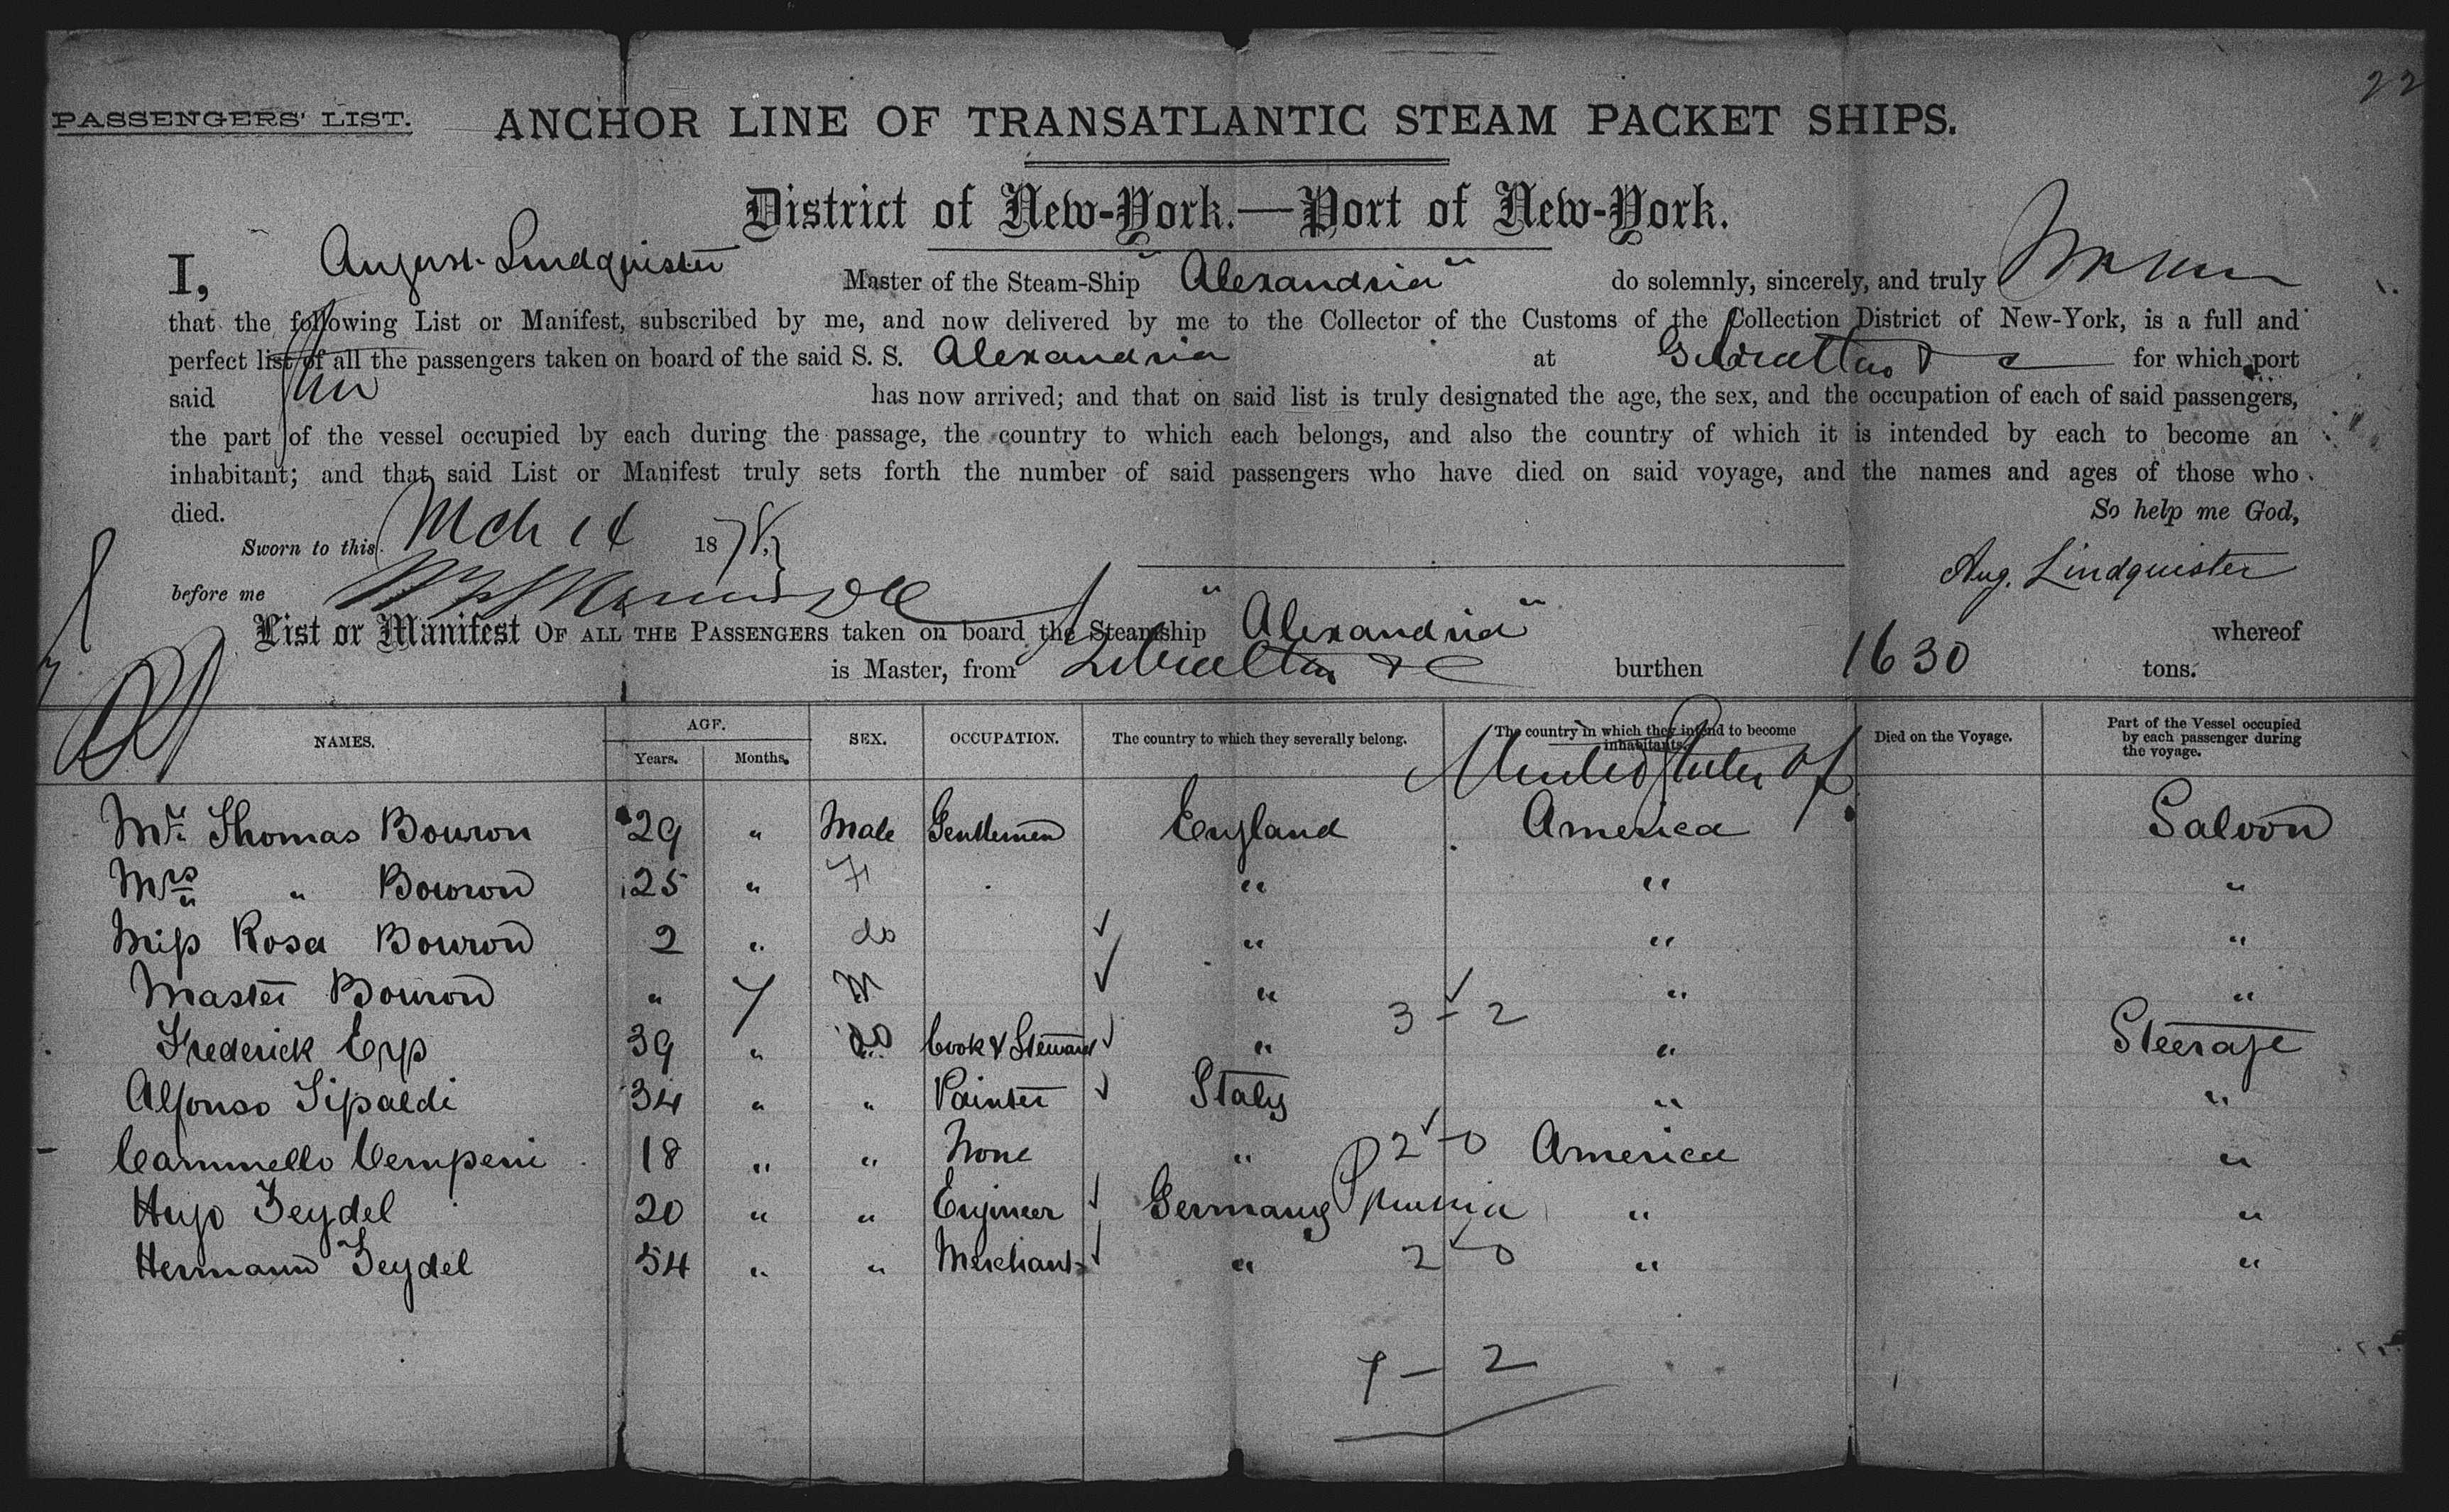 22
PASSENGERS' LIST. ANCHOR LINE OF TRANSATLANTIC STEAM PACKET SHIPS.
District of New-York.—Port of New-York.
I, August Lindquister Master of the Steam-Ship "Alexandria" do solemnly, sincerely, and truly
that the following List or Manifest, subscribed by me, and now delivered by me to the Collector of the Customs of the Collection District of New-York, is a full and
perfect list of all the passengers taken on board of the said S. S. Alexandria at Gibraltar &c for which port
said has now arrived; and that on said list is truly designated the age, the sex, and the occupation of each of said passengers,
the part of the vessel occupied by each during the passage, the country to which each belongs, and also the country of which it is intended by each to become an
inhabitant; and that said List or Manifest truly sets forth the number of said passengers who have died on said voyage, and the names and ages of those who
died. So help me God,
Sworn to this Mch 14 1878,
before me Aug. Lindquister
List or Manifest OF ALL THE PASSENGERS taken on board the Steamship "Alexandria" whereof
is Master, from Gibraltar &c burthen 1630 tons.
NAMES. AGE. Years. Months. SEX. OCCUPATION. The country to which they severally belong. The country in which they intend to become inhabitants. Died on the Voyage. Part of the Vessel occupied by each passenger during the voyage.
United States of
Mr. Thomas Bowron 29 " Male Gentlemen England America Saloon
Mrs " Bowron 25 " F " " "
Miss Rosa Bowron 2 " do " " "
Master Bowron " 7 M " " "
3 - 2
Frederick Erp 39 " do Cook & Steward " " Steerage
Alfonso Sipaldi 34 " " Painter Italy " "
2 - 0
Cammello Cempeni 18 " " None " America "
Hugo Zeydel 20 " " Engineer Germany Prussia " "
Hermann Zeydel 54 " " Merchant " " "
2 - 0
7 - 2